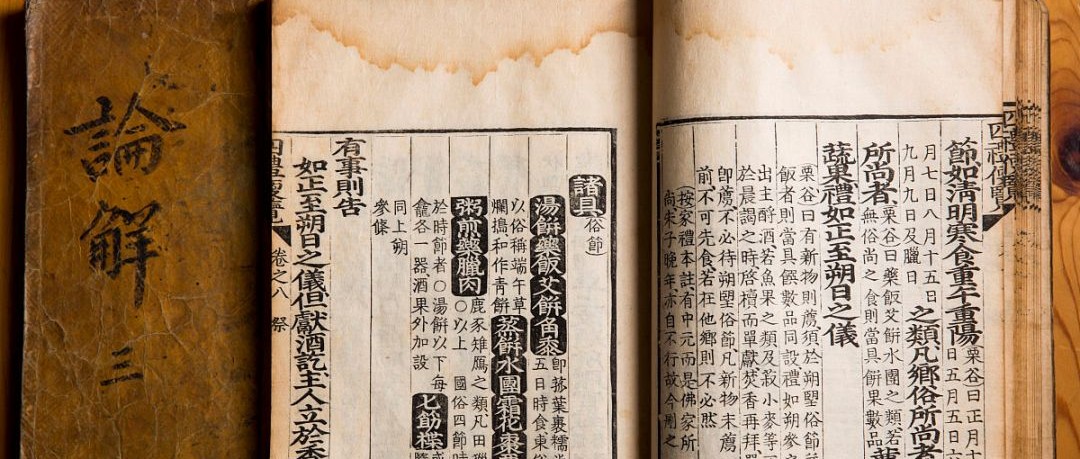 論解
三
節如清明寒食重午重陽
栗谷曰正月十
日五月五日六
月七日八月十五日
九月九日及臘日
之類凡鄉俗所尚者
所尚者
栗谷曰藥飯艾餅水團之類若
無俗尚之食則當具餅果數品
蔬果禮如正至朔日之儀
栗谷曰有新物則薦須於朔望俗節
飯者則當具饌數品同設禮如朔參
出主酹酒若魚果之類及菽小麥等
於晨謁之時啓櫝而單獻焚香再拜
卽薦不必待朔望俗節凡新物未薦
前不可先食若在他鄉則不必然
按家禮本註有中元而是佛家所
尚朱子晚年亦自不行故今刪之
諸具俗節
湯餅藥飯艾餅角黍
卽菰葉裹糯
五日時食東俗
以俗稱端午草
爛搗和作青餅
蒸餅水團霜花棗
粥煎藥臘肉
鹿豕雉鴈之類凡田
○以上國俗四節時
於時節者○湯餅以下每
龕各一器酒果外加設
匕筯楪
同上朔
參條
有事則告
如正至朔日之儀但獻酒訖主人立於香
四禮便覽 卷之八 祭